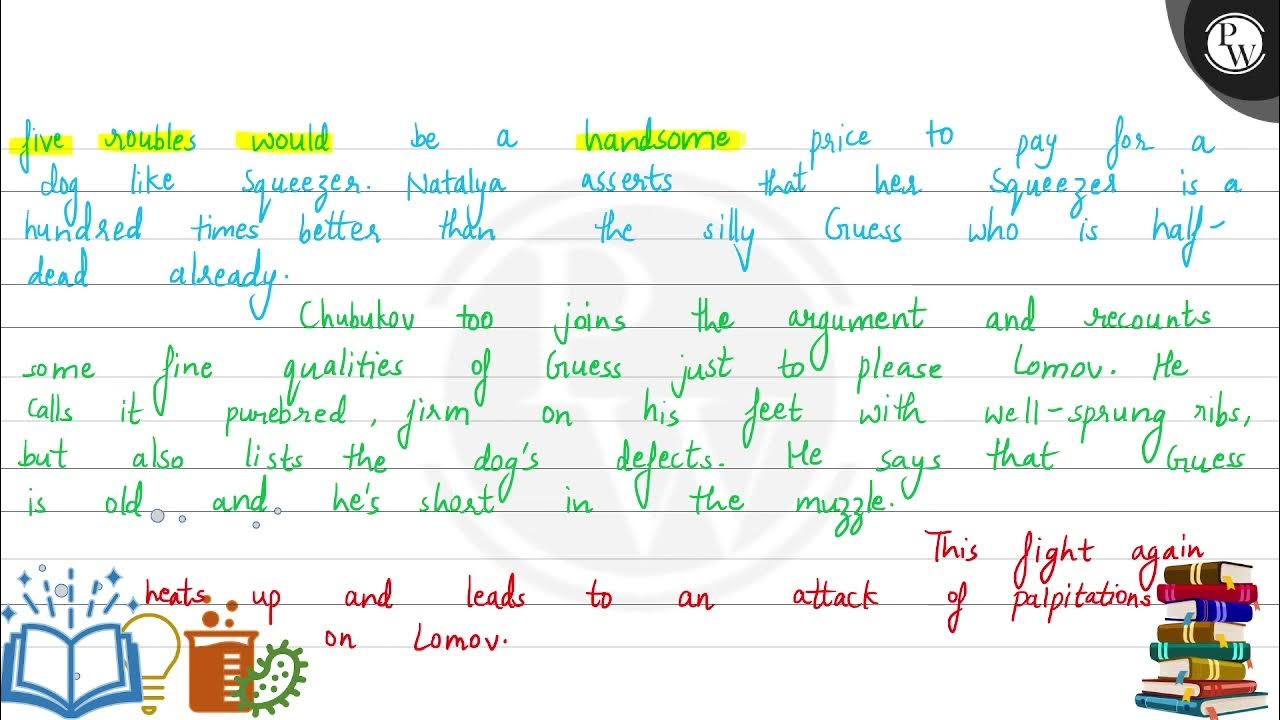 PW
five roubles would be a handsome price to pay for a
dog like Squeezer. Natalya asserts that her Squeezer is a
hundred times better than the silly Guess who is half-
dead already.
Chubukov too joins the argument and recounts
some fine qualities of Guess just to please Lomov. He
calls it purebred, firm on his feet with well-sprung ribs,
but also lists the dog's defects. He says that Guess
is old and he's short in the muzzle.
This fight again
heats up and leads to an attack of palpitations
on Lomov.